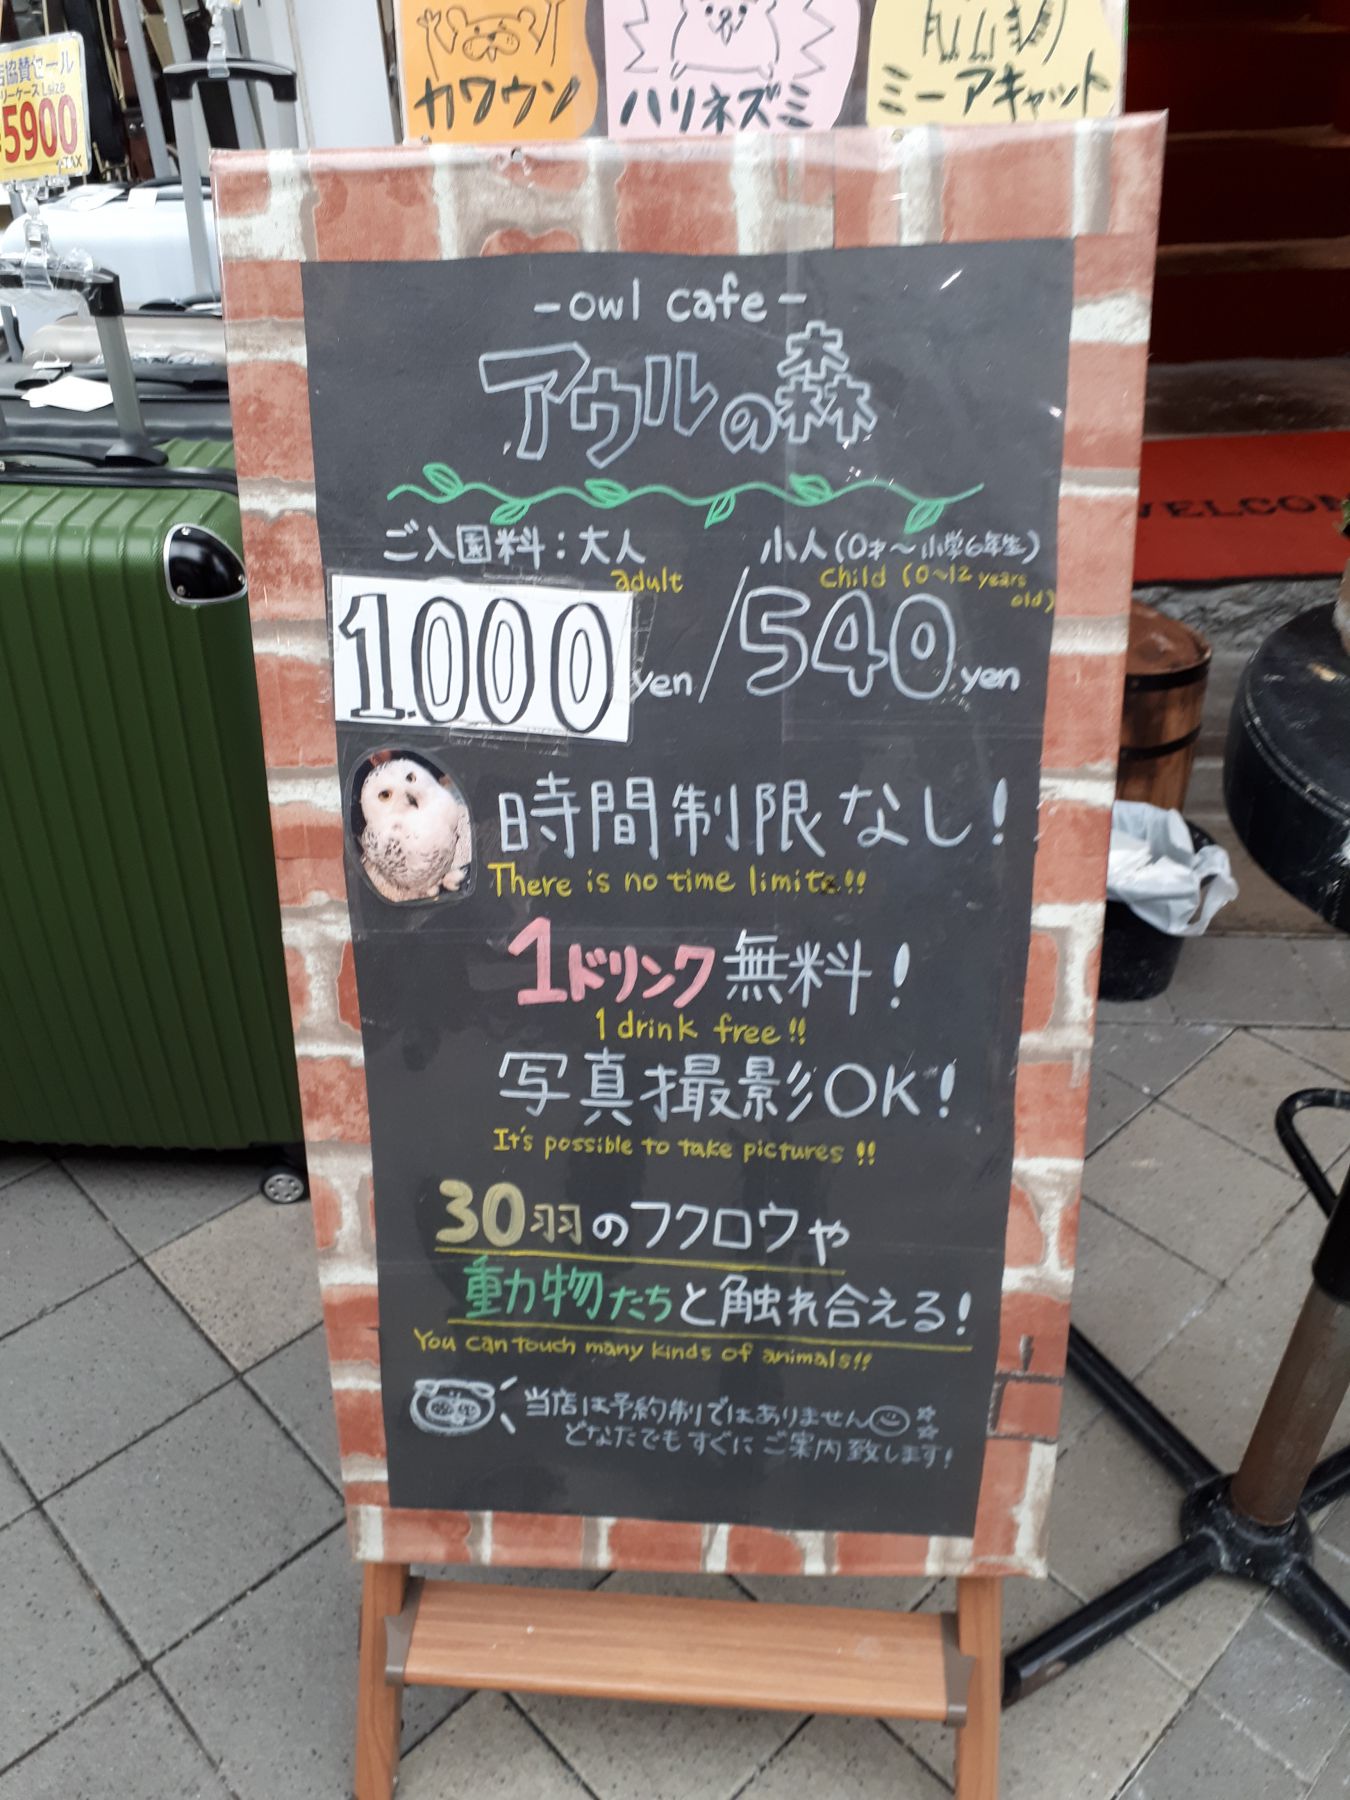 カワウソ
ハリネズミ
ミーアキャット
店協賛セール
リーケース Lsize
¥5900
+TAX
-owl cafe-
アウルの森
ご入園料：大人 小人（0才～小学6年生）
adult child (0~12 years old)
1.000 yen / 540 yen
時間制限なし！
There is no time limit!!
1ドリンク無料！
1 drink free!!
写真撮影OK！
It's possible to take pictures!!
30羽のフクロウや
動物たちと触れ合える！
You can touch many kinds of animals!!
当店は予約制ではありません
どなたでもすぐにご案内致します！
WELCOM